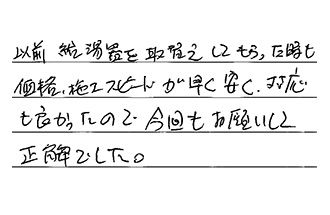 以前 給湯器を取替えしてもらった時も
価格、施工スピードが早く安く、対応
も良かったので今回もお願いして
正解でした。